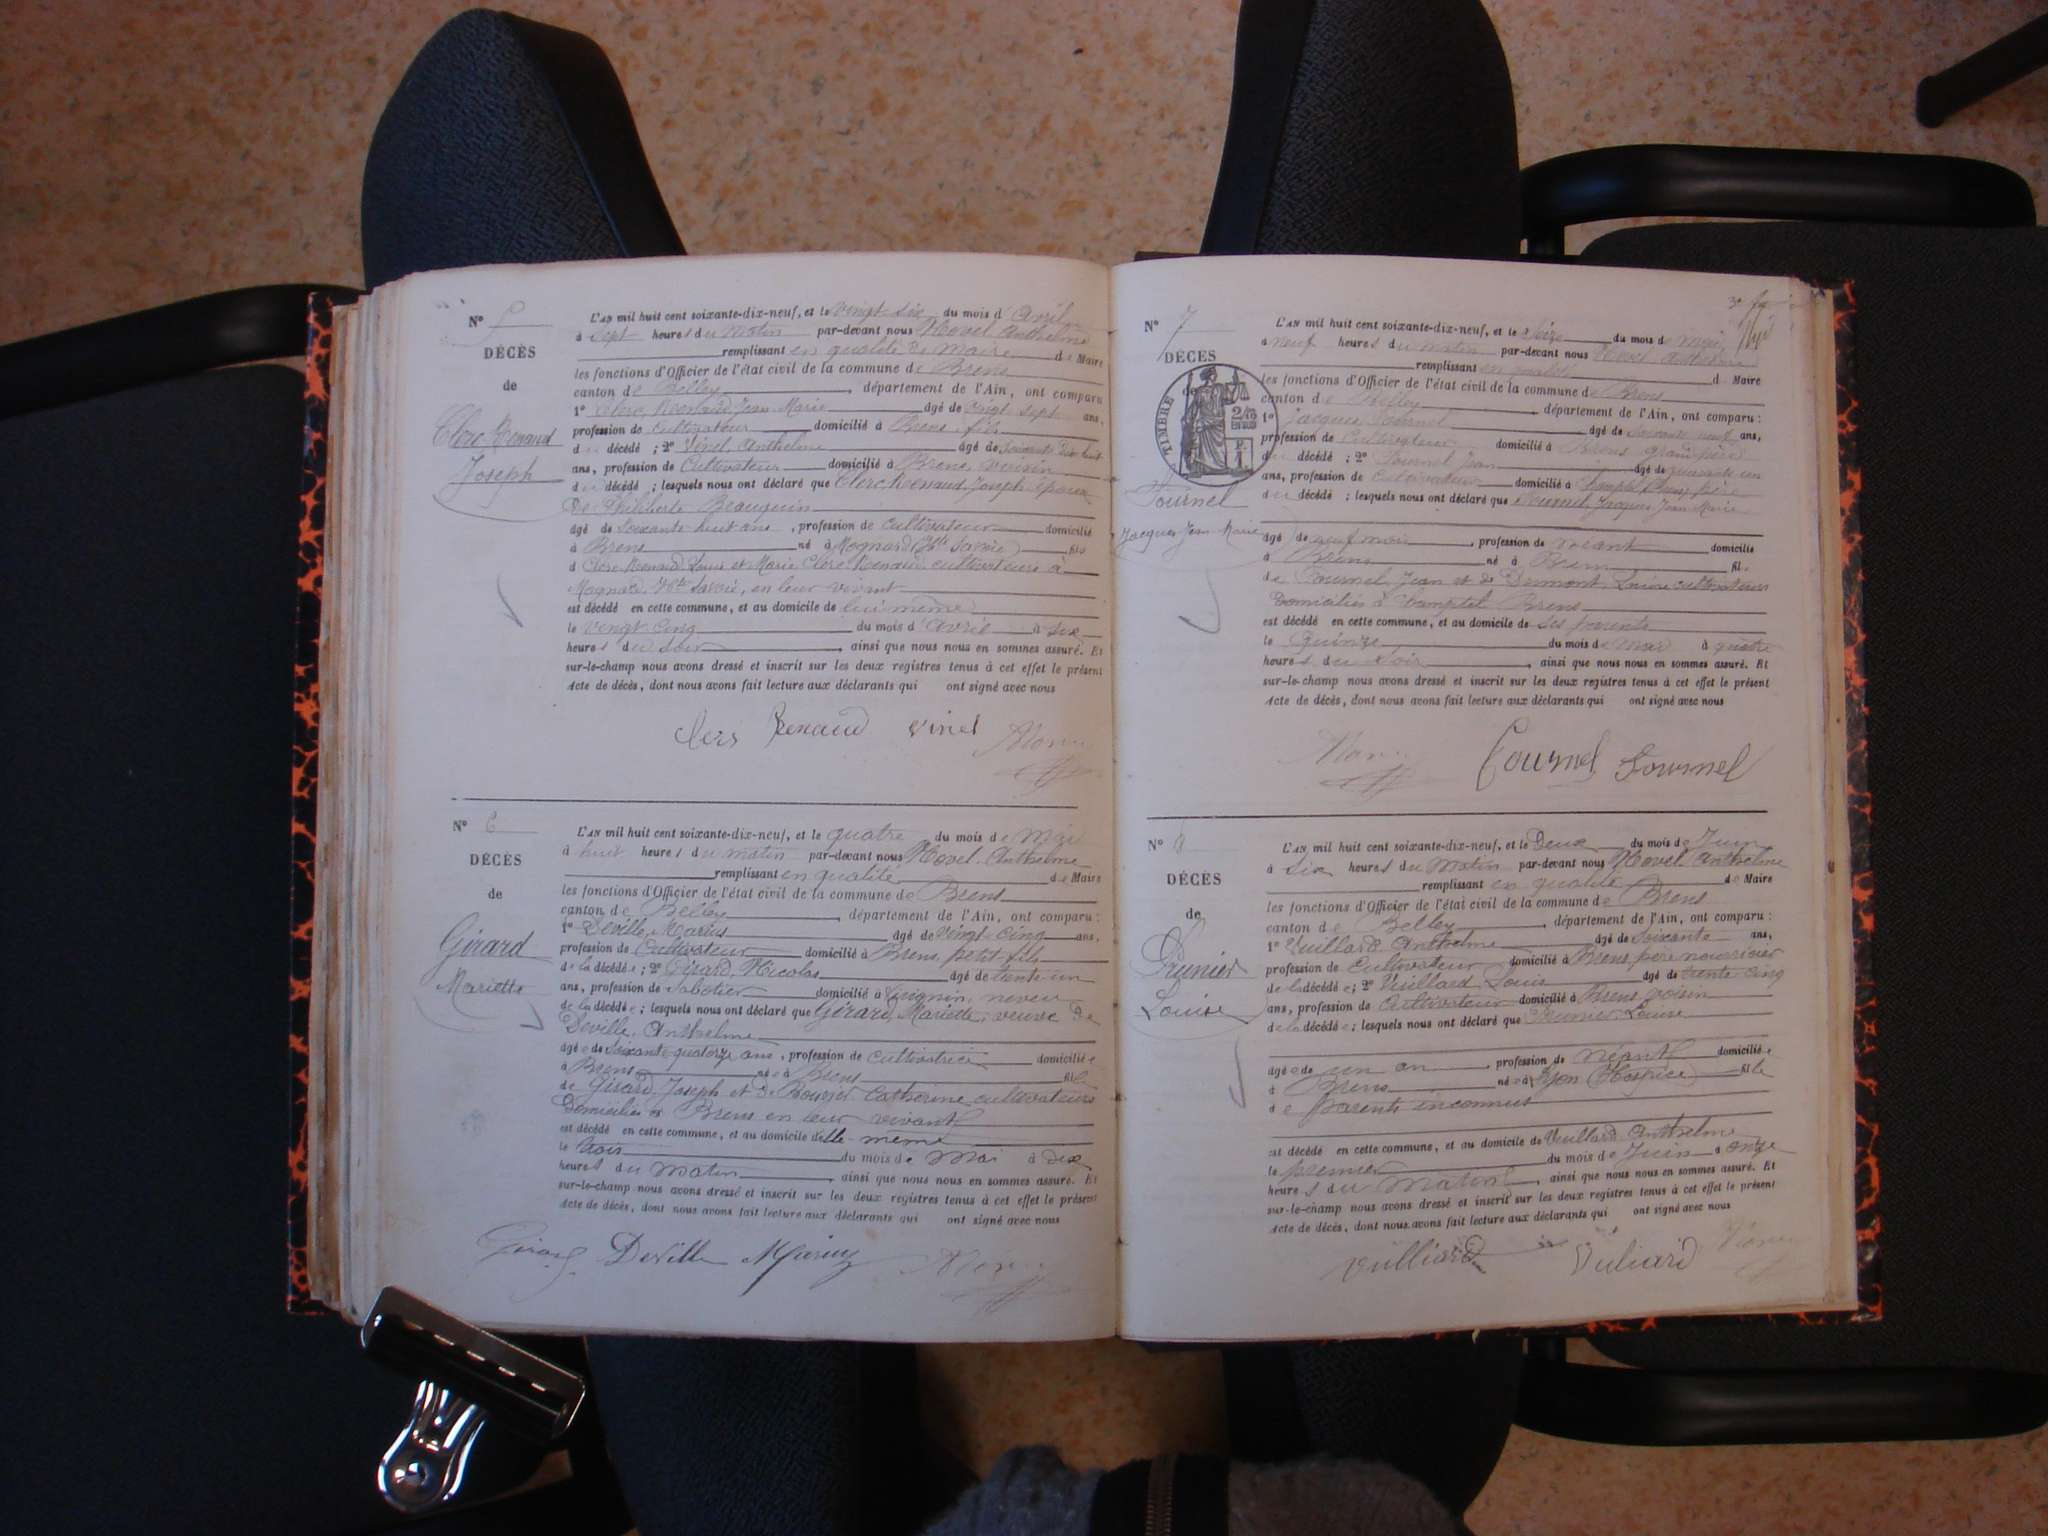 N° 5
DÉCÈS
de
Clerc Renaud
Joseph
L'AN mil huit cent soixante-dix-neuf, et le vingt six du mois d'Avril
à sept heures du matin par-devant nous Hovel Anthelme
remplissant en qualité de Maire de Maire
les fonctions d'Officier de l'état civil de la commune de Brens
canton de Belley, département de l'Ain, ont comparu
1° Clerc Renaud Jean Marie âgé de vingt sept ans,
profession de cultivateur domicilié à Brens, fils
du décédé ; 2° Vinel Anthelme âgé de soixante dix huit
ans, profession de Cultivateur domicilié à Brens, voisin
du décédé ; lesquels nous ont déclaré que Clerc Renaud Joseph époux
De Philiberte Beauquin
âgé de soixante huit ans, profession de cultivateur domicilié
à Brens né à Mognard (Hte Savoie) fils
d Clerc Renaud Louis et Marie Clerc Renaud cultivateurs à
Mognard, Hte Savoie, en leur vivant
est décédé en cette commune, et au domicile de lui même
le vingt cinq du mois d'Avril à six
heures du soir, ainsi que nous nous en sommes assuré. Et
sur-le-champ nous avons dressé et inscrit sur les deux registres tenus à cet effet le présent
Acte de décès, dont nous avons fait lecture aux déclarants qui ont signé avec nous
Clers Renaud Vinel
N° 6
DÉCÈS
de
Girard
Mariette
L'AN mil huit cent soixante-dix-neuf, et le quatre du mois de Mai
à huit heures du matin par-devant nous Hovel Anthelme
remplissant en qualité de Maire
les fonctions d'Officier de l'état civil de la commune de Brens
canton de Belley, département de l'Ain, ont comparu :
1° Déville Marius âgé de vingt cinq ans,
profession de Cultivateur domicilié à Brens, petit-fils
de la décédée ; 2° Girard Nicolas âgé de trente un
ans, profession de Sabotier domicilié à neveu
de la décédée ; lesquels nous ont déclaré que Gérard Mariette, veuve De
Déville Anthelme
âgée de soixante quatorze ans, profession de cultivatrice domiciliée
à Brens née à Brens fille
de Girard Joseph et de Catherine cultivateurs
Domiciliés à Brens en leur vivant
est décédé en cette commune, et au domicile d'elle-même
le trois du mois de Mai à dix
heures du matin, ainsi que nous nous en sommes assuré. Et
sur-le-champ nous avons dressé et inscrit sur les deux registres tenus à cet effet le présent
Acte de décès, dont nous avons fait lecture aux déclarants qui ont signé avec nous
Girard Deville Marius
N° 7
DÉCÈS
de
TIMBRE
Tournel
Jacques Jean Marie
L'AN mil huit cent soixante-dix-neuf, et le seize du mois de Mai
à neuf heures du matin par-devant nous Hovel Anthelme
remplissant en qualité de Maire
les fonctions d'Officier de l'état civil de la commune de Brens
canton de Belley, département de l'Ain, ont comparu :
1° Jacques Tournel âgé de soixante neuf ans,
profession de Cultivateur domicilié à Brens grand père
du décédé ; 2° Tournel Jean âgé de quarante un
ans, profession de Cultivateur domicilié à père
du décédé ; lesquels nous ont déclaré que Tournel Jacques Jean Marie
âgé de neuf mois, profession de néant domicilié
à Brens né à Brens fils
de Tournel Jean et de Dumont Louise cultivateurs
Domiciliés à Brens
est décédé en cette commune, et au domicile de ses parents
le Quinze du mois de Mai à quatre
heures du soir, ainsi que nous nous en sommes assuré. Et
sur-le-champ nous avons dressé et inscrit sur les deux registres tenus à cet effet le présent
Acte de décès, dont nous avons fait lecture aux déclarants qui ont signé avec nous
Tournel Tournel
N° 8
DÉCÈS
de
Prunier
Louise
L'AN mil huit cent soixante-dix-neuf, et le Deux du mois de Juin
à six heures du Matin par-devant nous Hovel Anthelme
remplissant en qualité de Maire
les fonctions d'Officier de l'état civil de la commune de Brens
canton de Belley, département de l'Ain, ont comparu :
1° Vuillard Anthelme âgé de soixante ans,
profession de Cultivateur domicilié à Brens père nourricier
de la décédée ; 2° Vuillard Louis âgé de trente cinq
ans, profession de Cultivateur domicilié à Brens voisin
de la décédée ; lesquels nous ont déclaré que Prunier Louise
âgée de un an, profession de Néant domiciliée
à Brens née à Lyon (Hospice) fille
de parents inconnus
est décédé en cette commune, et au domicile de Vuillard Anthelme
le premier du mois de Juin à onze
heures du Matin, ainsi que nous nous en sommes assuré. Et
sur-le-champ nous avons dressé et inscrit sur les deux registres tenus à cet effet le présent
Acte de décès, dont nous avons fait lecture aux déclarants qui ont signé avec nous
Vulliard Vuliard